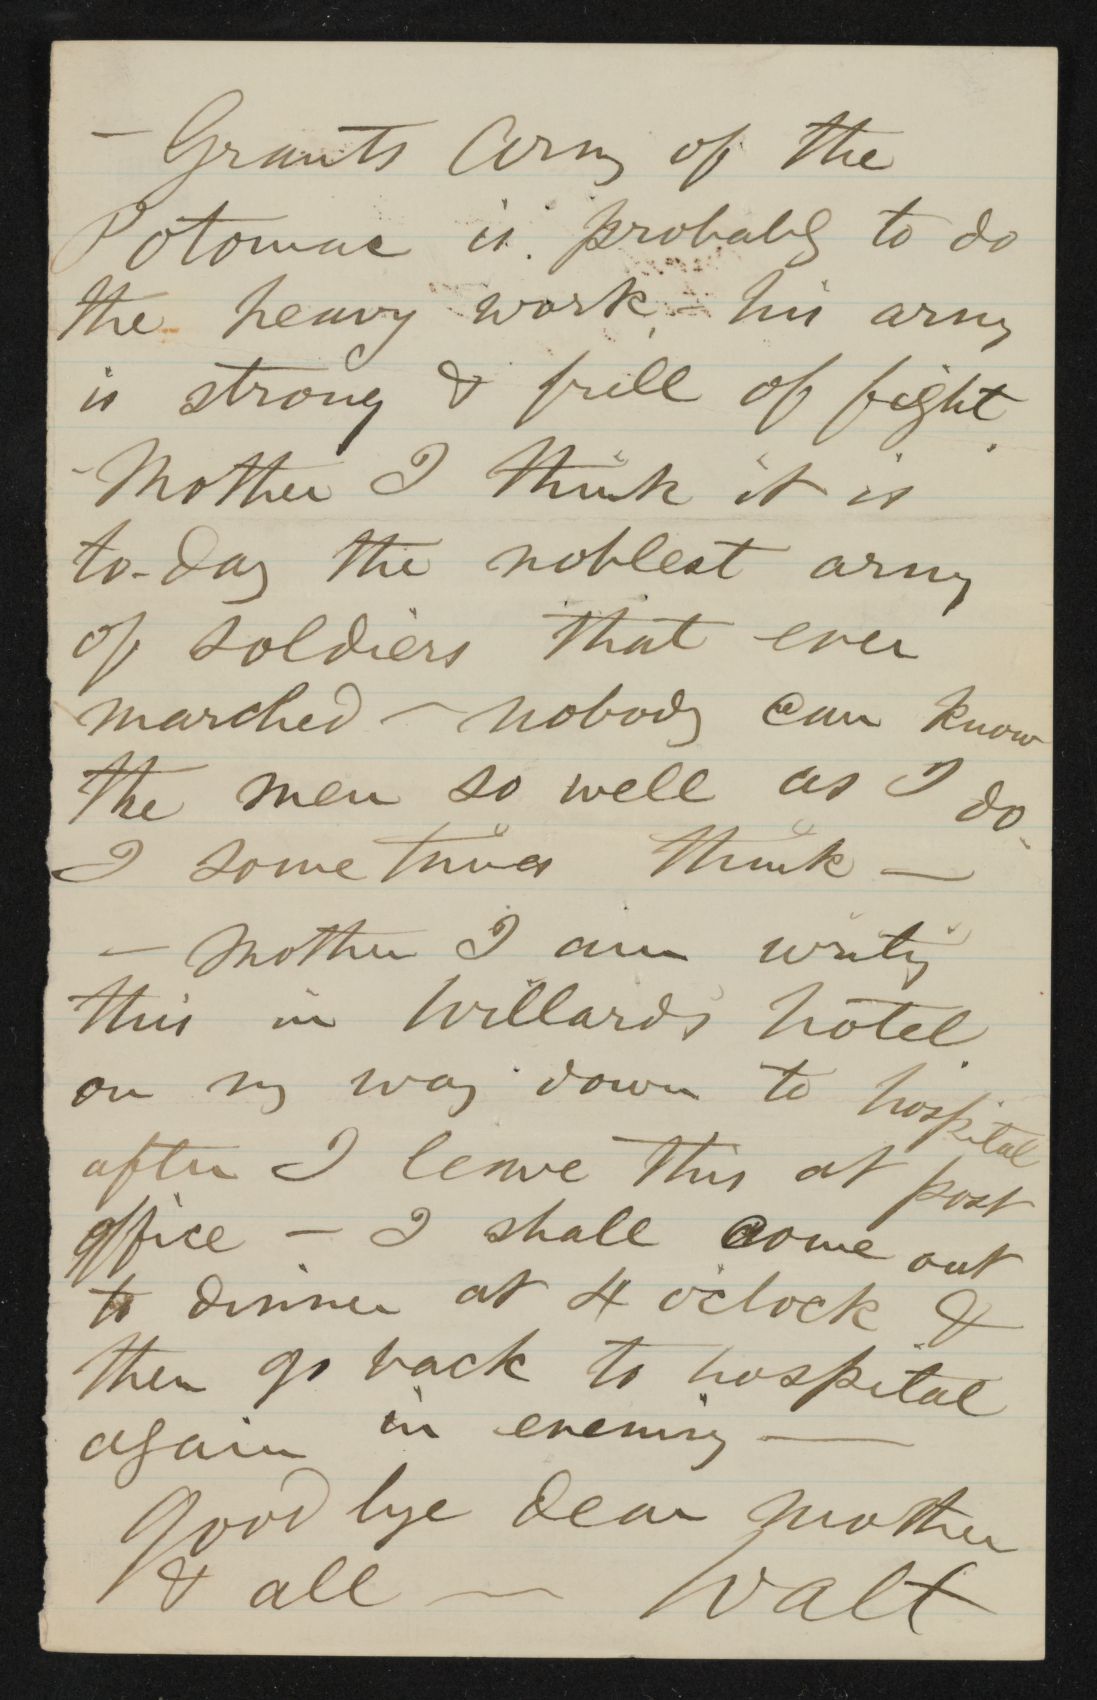 — Grants Army of the
Potomac is probably to do
the heavy work, – his army
is strong & full of fight.
- Mother I think it is
to-day the noblest army
of soldiers that ever
marched – nobody can know
the men so well as I do.
I sometimes think —
— Mother I am writing
this in Willards hotel
on my way down to hospital
after I leave this at post
office – I shall come out
to dinner at 4 o'clock &
then go back to hospital
again in evening —
Good bye dear mother
& all — Walt